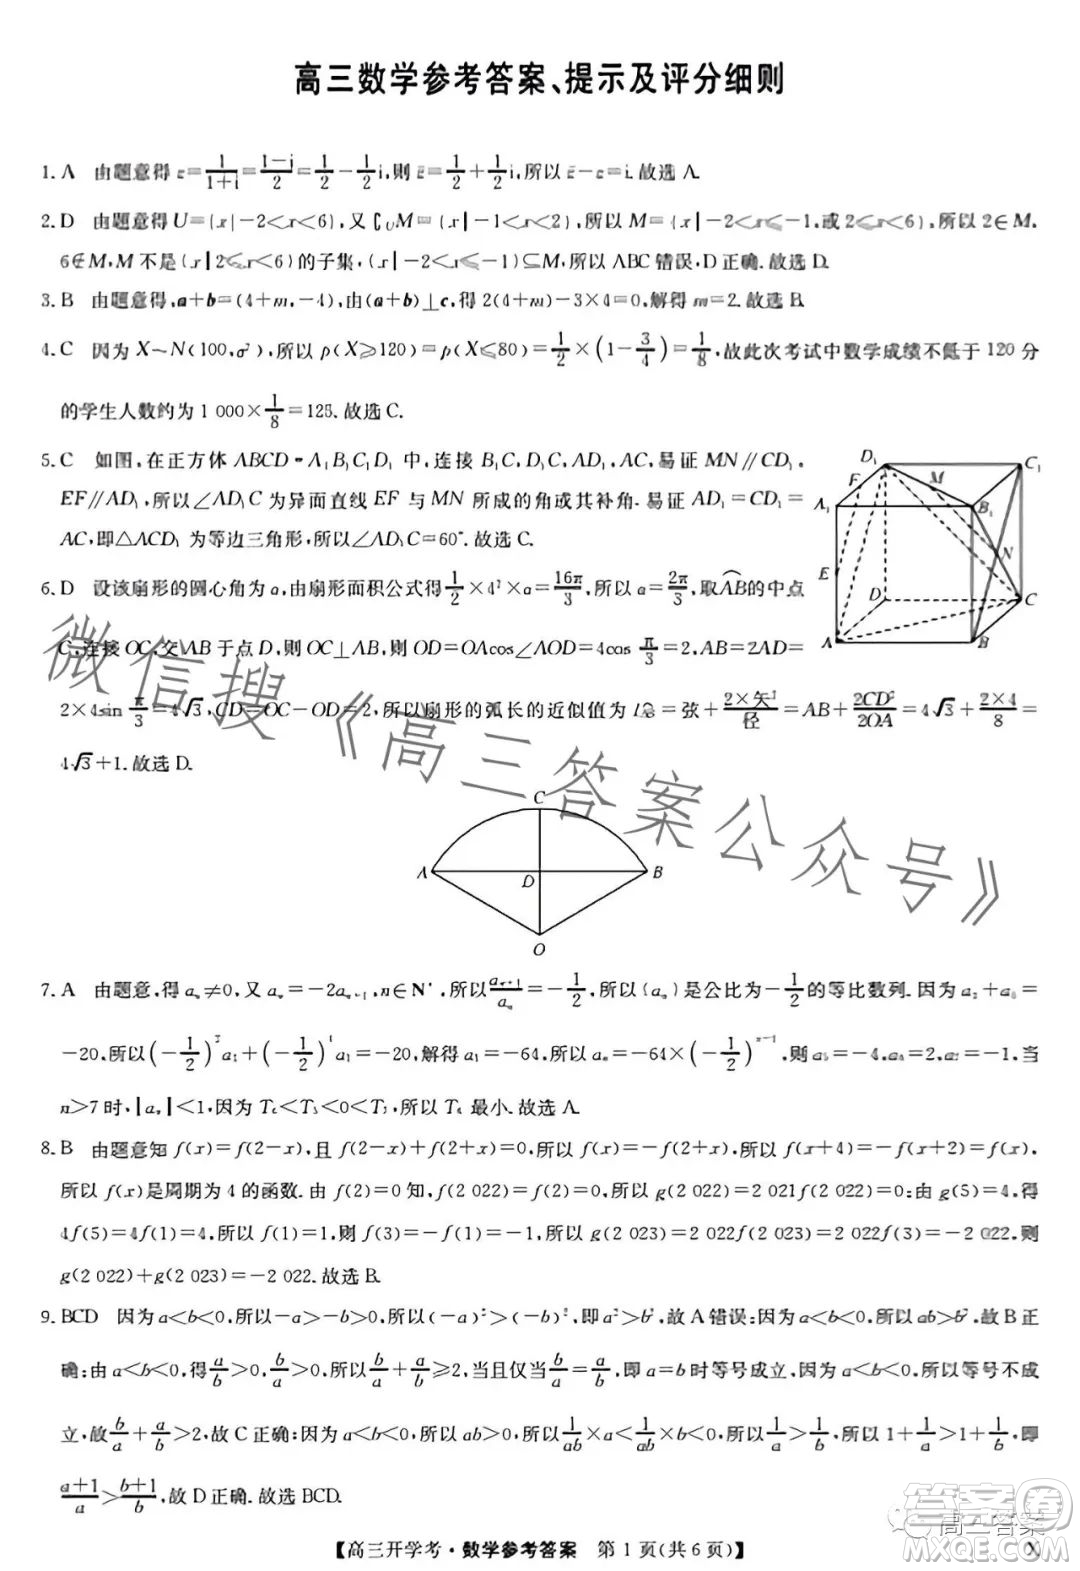 高三数学参考答案、提示及评分细则
1. A 由题意得 z=1/(1+i)=(1-i)/2=1/2-1/2i,则 z̄=1/2+1/2i,所以 z̄-z=i.故选 A.
2. D 由题意得 U={x|-2<x<6},又∁UM={x|-1<x<2},所以 M={x|-2<x≤-1,或 2≤x<6},所以 2∈M,
6∉M,M 不是{x|2≤x<6}的子集,{x|-2<x≤-1}⊆M,所以 ABC 错误,D 正确.故选 D.
3. B 由题意得,a+b=(4+m,-4),由(a+b)⊥c,得 2(4+m)-3×4=0,解得 m=2.故选 B.
4. C 因为 X~N(100,σ²),所以 p(X≥120)=p(X≤80)=1/2×(1-3/4)=1/8,故此次考试中数学成绩不低于 120 分
的学生人数约为 1 000×1/8=125.故选 C.
5. C 如图,在正方体 ABCD-A₁B₁C₁D₁ 中,连接 B₁C,D₁C,AD₁,AC,易证 MN∥CD₁,
EF∥AD₁,所以∠AD₁C 为异面直线 EF 与 MN 所成的角或其补角.易证 AD₁=CD₁=
AC,即△ACD₁ 为等边三角形,所以∠AD₁C=60°.故选 C.
D₁ C₁ M F A₁ B₁ N E D C A B
6. D 设该扇形的圆心角为 α,由扇形面积公式得 1/2×4²×α=16π/3,所以 α=2π/3,取 AB⌢ 的中点
C,连接 OC,交 AB 于点 D,则 OC⊥AB,则 OD=OAcos∠AOD=4cos π/3=2,AB=2AD=
2×4sin π/3=4√3,CD=OC-OD=2,所以扇形的弧长的近似值为 l弧=弦+(2×矢²)/径=AB+2CD²/2OA=4√3+(2×4)/8=
4√3+1.故选 D.
C A D B O
7. A 由题意,得 aₙ≠0,又 aₙ=-2aₙ₊₁,n∈N*,所以 aₙ₊₁/aₙ=-1/2,所以{aₙ}是公比为-1/2的等比数列.因为 a₂+a₆=
-20,所以(-1/2)²a₁+(-1/2)⁴a₁=-20,解得 a₁=-64,所以 aₙ=-64×(-1/2)ⁿ⁻¹,则 a₅=-4,a₆=2,a₇=-1,当
n>7 时,|aₙ|<1,因为 T₆<T₅<0<T₇,所以 T₆ 最小.故选 A.
8. B 由题意知 f(x)=f(2-x),且 f(2-x)+f(2+x)=0,所以 f(x)=-f(2+x),所以 f(x+4)=-f(x+2)=f(x),
所以 f(x)是周期为 4 的函数.由 f(2)=0 知,f(2 022)=f(2)=0,所以 g(2 022)=2 021f(2 022)=0;由 g(5)=4,得
4f(5)=4f(1)=4,所以 f(1)=1,则 f(3)=-f(1)=-1,所以 g(2 023)=2 022f(2 023)=2 022f(3)=-2 022,则
g(2 022)+g(2 023)=-2 022.故选 B.
9. BCD 因为 a<b<0,所以-a>-b>0,所以(-a)²>(-b)²,即 a²>b²,故 A 错误;因为 a<b<0,所以 ab>b²,故 B 正
确;由 a<b<0,得 a/b>0,b/a>0,所以 b/a+a/b≥2,当且仅当 b/a=a/b,即 a=b 时等号成立,因为 a<b<0,所以等号不成
立,故 b/a+a/b>2,故 C 正确;因为 a<b<0,所以 ab>0,所以 1/ab×a<1/ab×b,所以 1/a>1/b,所以 1+1/a>1+1/b,即
(a+1)/a>(b+1)/b,故 D 正确.故选 BCD.
微信搜《高三答案公众号》
【高三开学考·数学参考答案 第 1 页(共 6 页)】
X
高三答案
答案圈
MXQE.COM